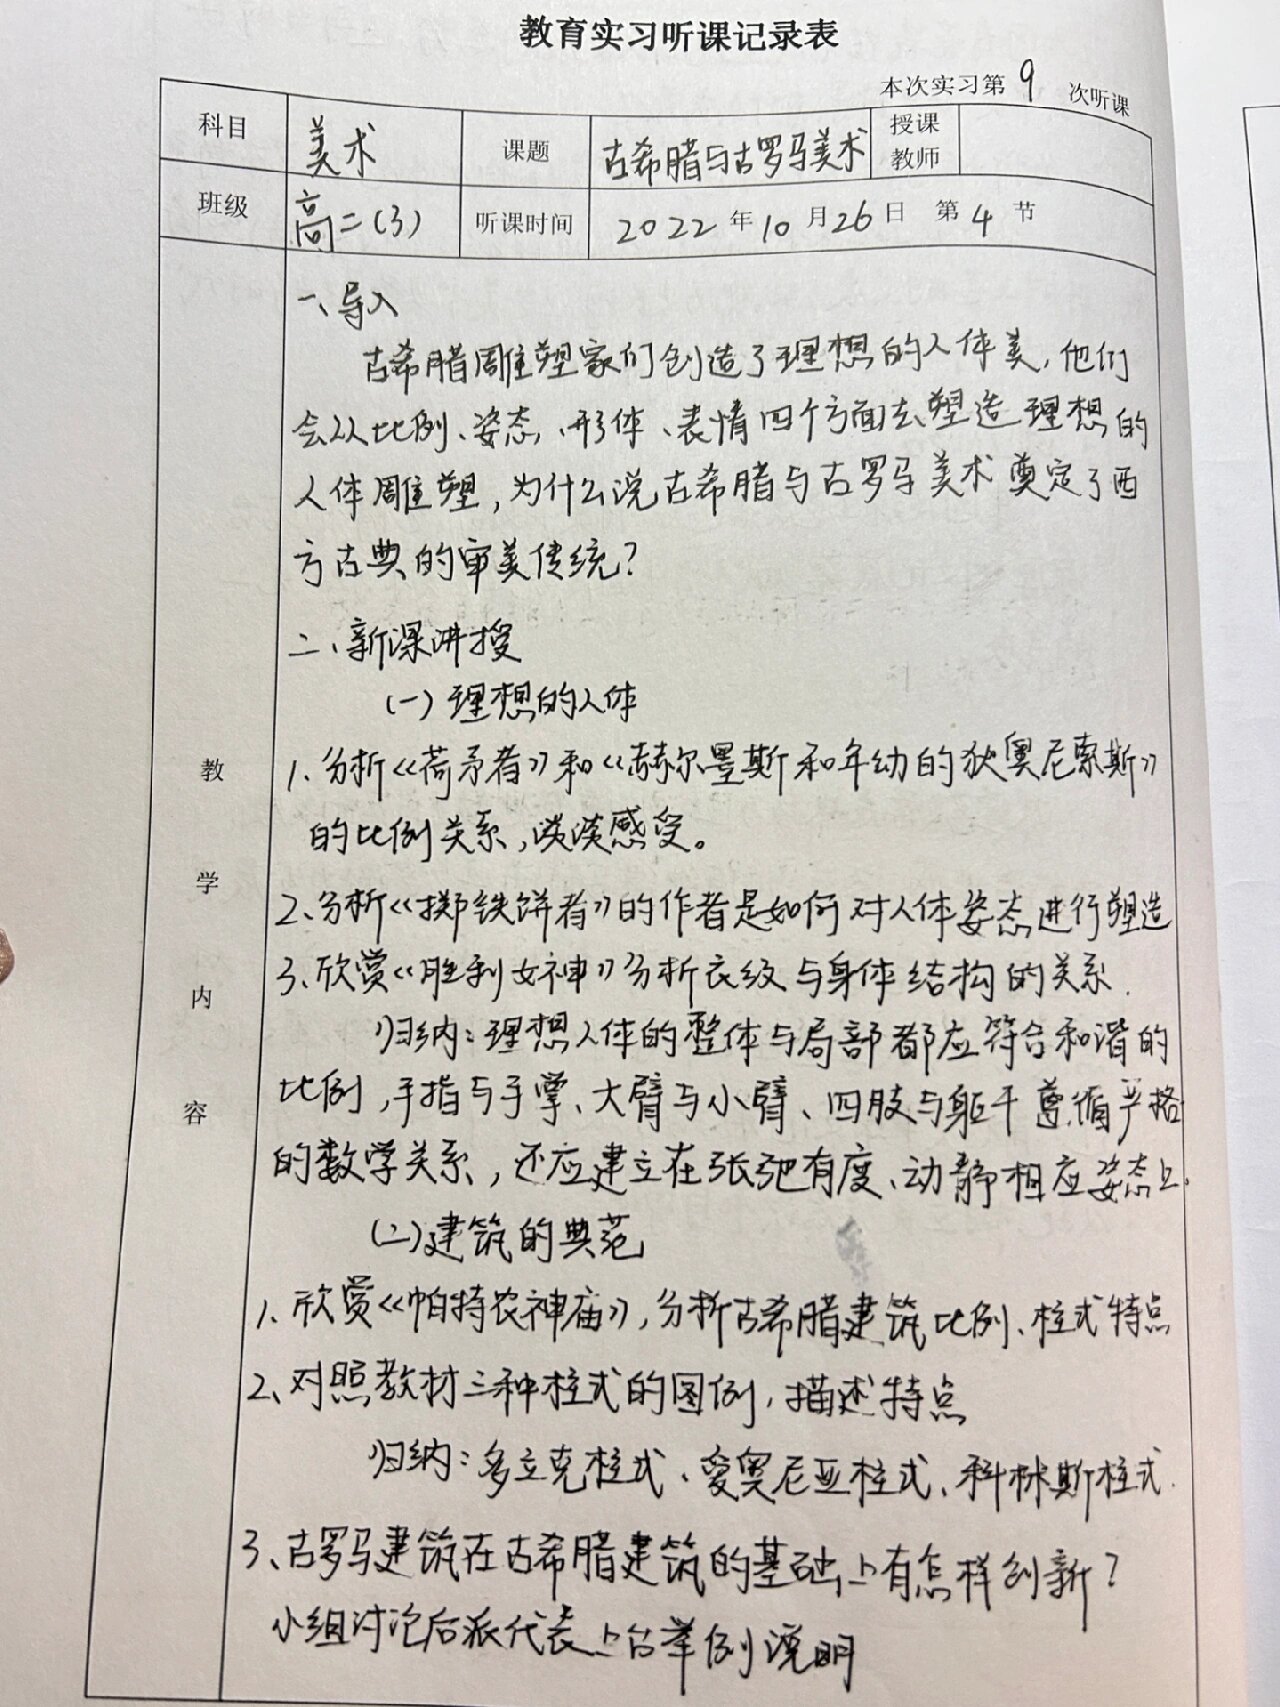 教育实习听课记录表
本次实习第 9 次听课
科目 美术 课题 古希腊与古罗马美术 授课教师
班级 高二(3) 听课时间 2022年10月26日 第4节
教学内容
一、导入
古希腊雕塑家们创造了理想的人体美,他们
会从比例、姿态、形体、表情四个方面去塑造理想的
人体雕塑,为什么说古希腊与古罗马美术奠定了西
方古典的审美传统?
二、新课讲授
(一)理想的人体
1、分析《荷矛者》和《赫尔墨斯和年幼的狄奥尼索斯》
的比例关系,谈谈感受。
2、分析《掷铁饼者》的作者是如何对人体姿态进行塑造
3、欣赏《胜利女神》分析衣纹与身体结构的关系.
归纳:理想人体的整体与局部都应符合和谐的
比例,手指与手掌、大臂与小臂、四肢与躯干遵循严格
的数学关系,还应建立在张弛有度、动静相应姿态上。
(二)建筑的典范
1、欣赏《帕特农神庙》,分析古希腊建筑比例、柱式特点
2、对照教材三种柱式的图例,描述特点
归纳:多立克柱式、爱奥尼亚柱式、科林斯柱式.
3、古罗马建筑在古希腊建筑的基础上有怎样创新?
小组讨论后派代表上台举例说明